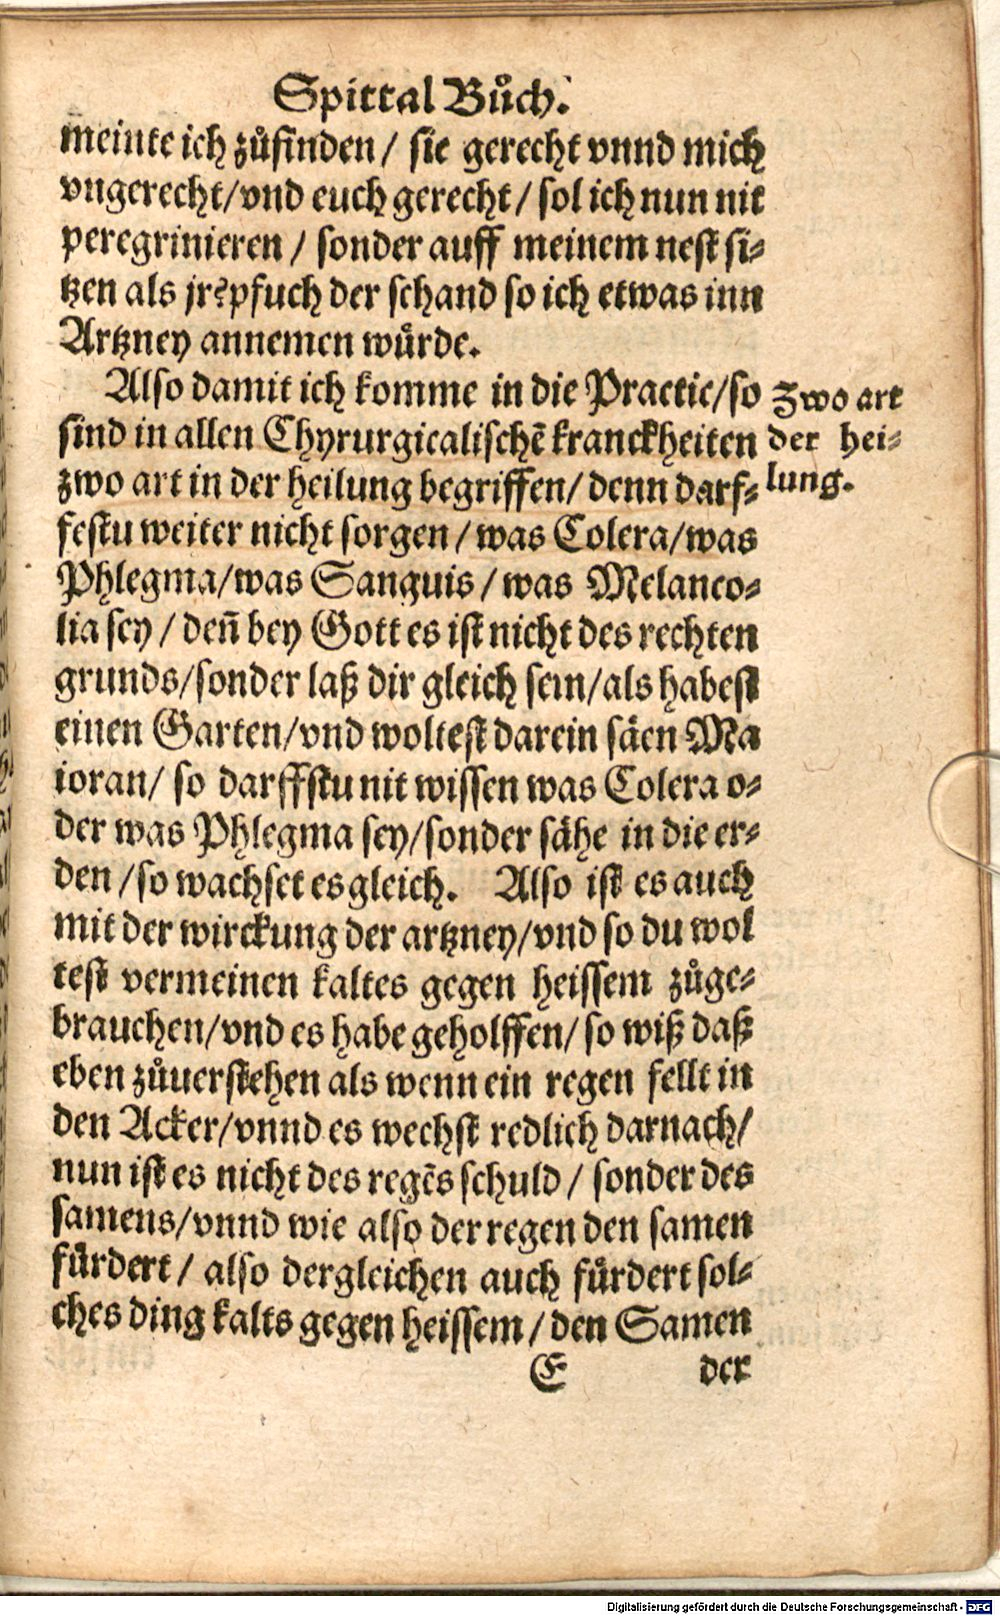 Spittal Bůch.
meinte ich zůfinden / sie gerecht vnnd mich
vngerecht/vnd euch gerecht / sol ich nun nit
peregrinieren / sonder auff meinem nest si⸗
tzen als jr?pfuch der schand so ich etwas inn
Artzney annemen wůrde.
Also damit ich komme in die Practic/so
sind in allen Chyrurgicalischẽ kranckheiten
zwo art in der heilung begriffen/ denn darf⸗
festu weiter nicht sorgen / was Colera/was
Phlegma/was Sanguis / was Melanco⸗
lia sey / den̄ bey Gott es ist nicht des rechten
grunds/sonder laß dir gleich sein/als habest
einen Garten/vnd woltest darein säen Ma
ioran/ so darffstu nit wissen was Colera o⸗
der was Phlegma sey/sonder sähe in die er⸗
den /so wachset es gleich. Also ist es auch
mit der wirckung der artzney/vnd so du wol
test vermeinen kaltes gegen heissem zůge⸗
brauchen/vnd es habe geholffen/ so wiß daß
eben zůuerstehen als wenn ein regen fellt in
den Acker/vnnd es wechst redlich darnach/
nun ist es nicht des regẽs schuld / sonder des
samens/vnnd wie also der regen den samen
fůrdert / also dergleichen auch fůrdert sol⸗
ches ding kalts gegen heissem / den Samen
E der
Zwo art
der hei⸗
lung.
Digitalisierung gefördert durch die Deutsche Forschungsgemeinschaft - DFG